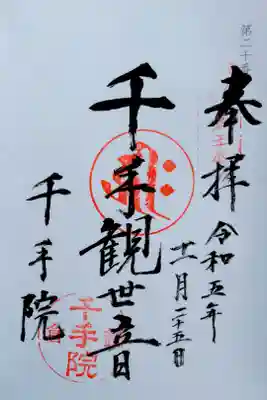 奉拝
令和五年
十一月二十五日
千手観世音
千手院
千手院